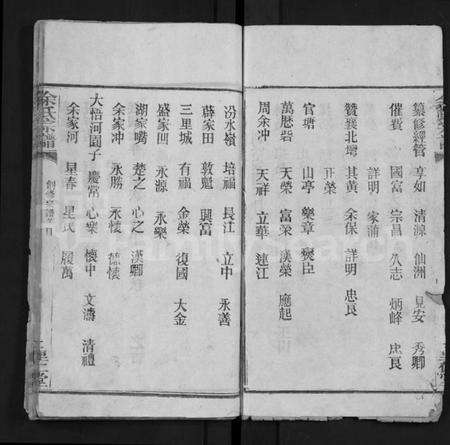 纂修總管 享如 清源 仙洲 見安 秀卿
催費 國富 宗昌 久志 炳峰 忠良
詳明 家浦
贊襄北塆 其黃 余保 詳明 忠良
正榮
官塘 山亭 樂章 襃臣
萬曆砦 天榮 富荣 漢榮 應起
周余冲 天祥 立華 連江
汾水嶺 培福 長江 立中 永善
薛家田 敦賦 興富
三里城 有福 金榮 復國 大金
盛家凹 永源 永樂
湖家嘴 楚之 心之 漢卿
余家冲 永勝 永懷 德懷
大悟河園子 慶常 心樂 懷中 文濤 清禮
余家河 星春 星氏 殿萬
余氏宗譜